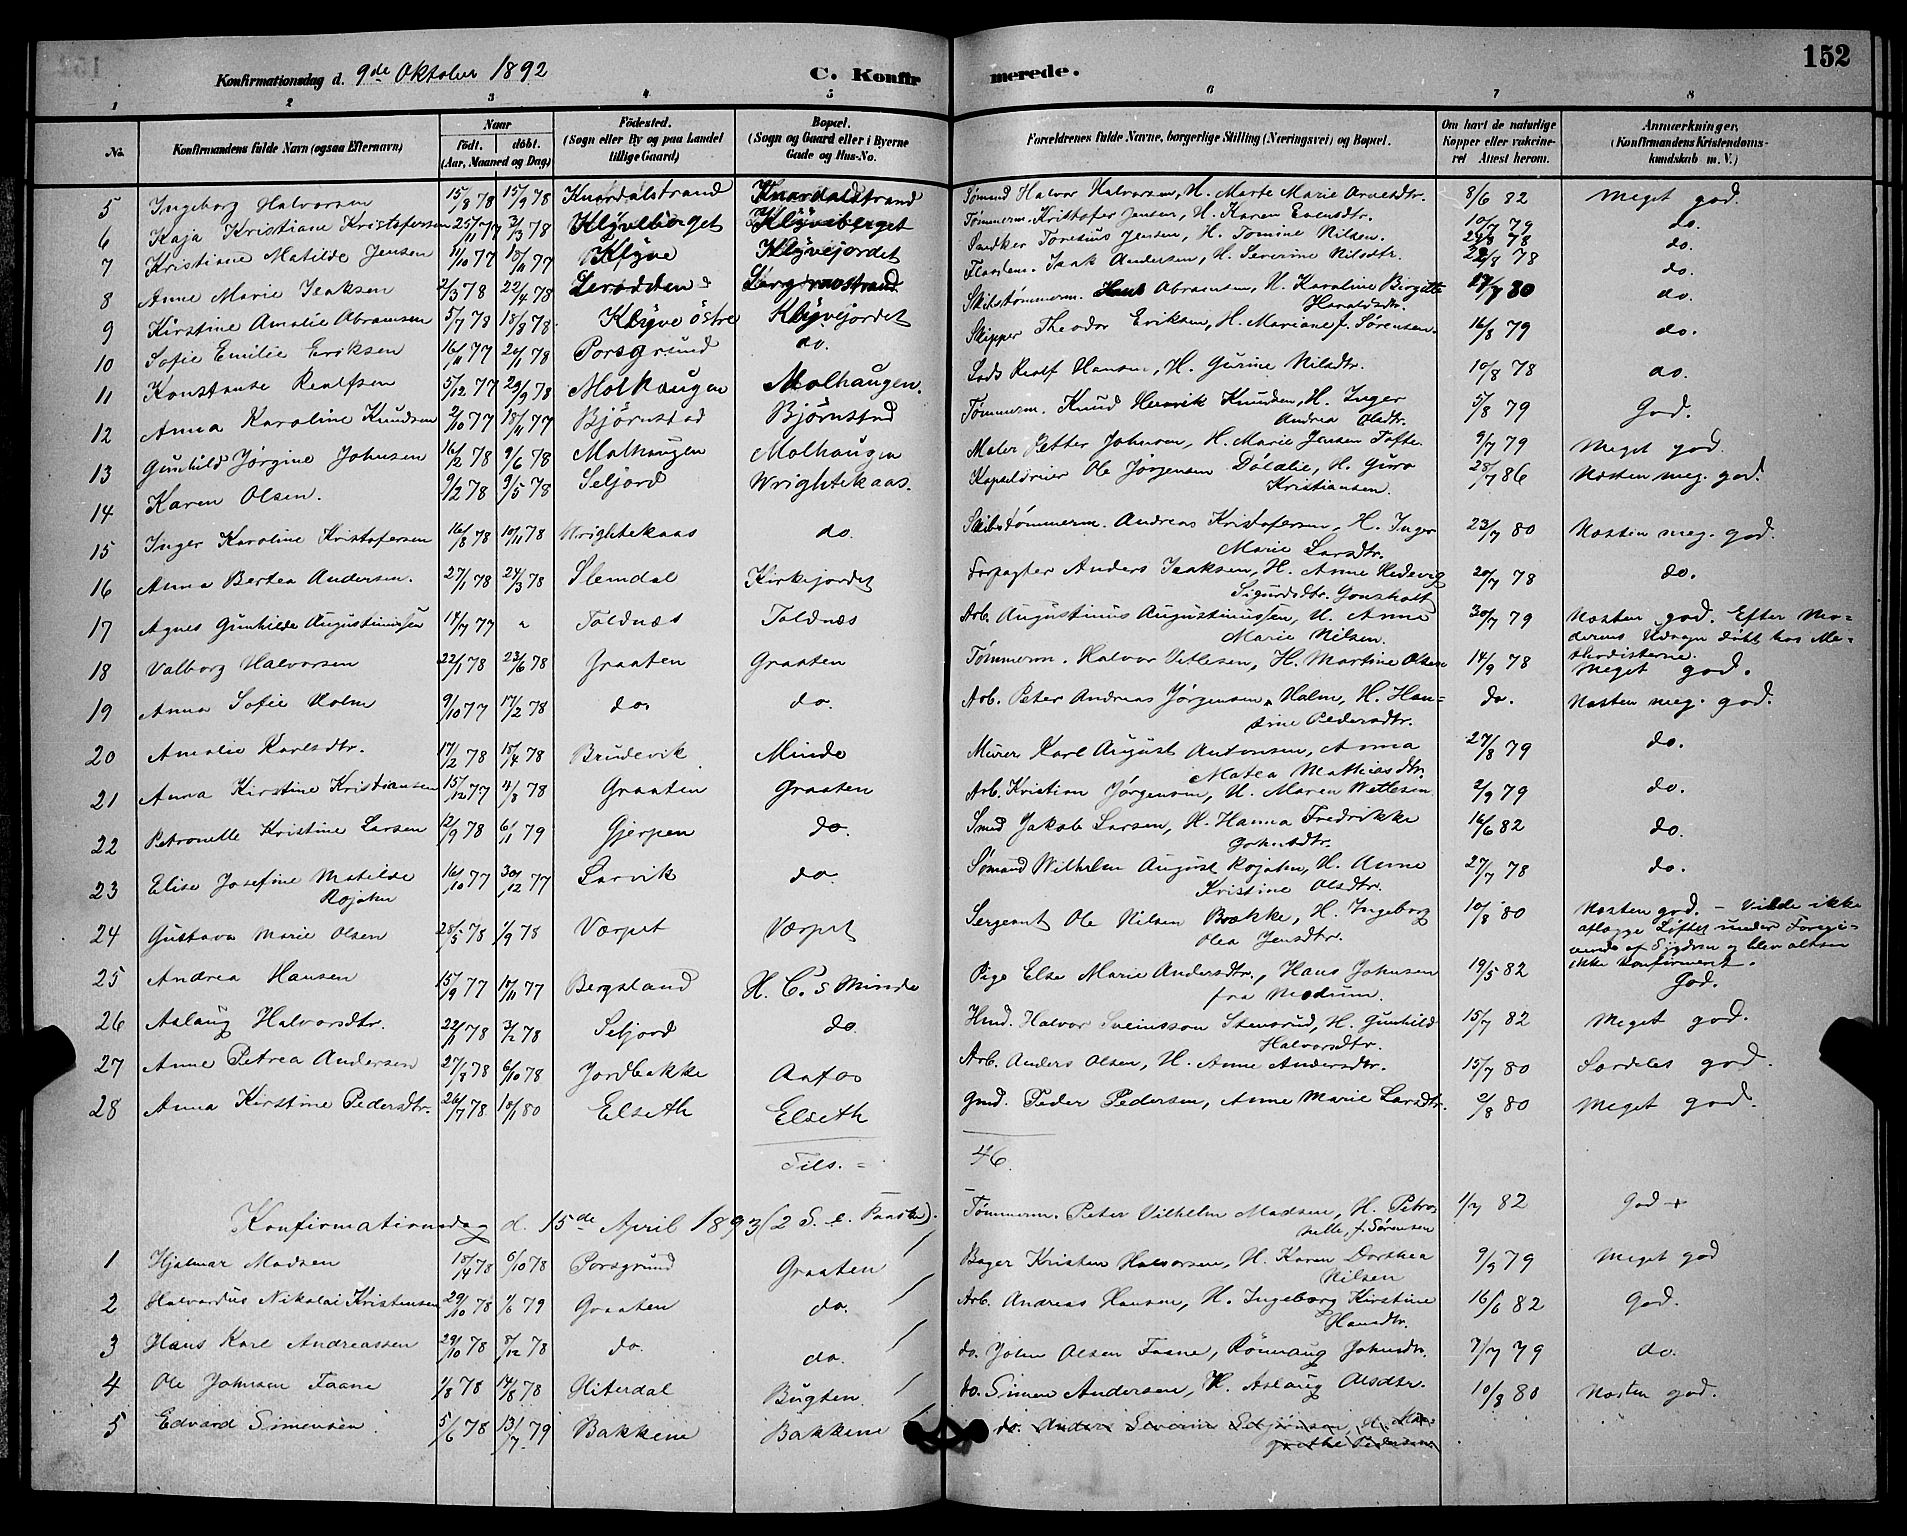 152
Konfirmationsdag d. 9de Oktober 1892 C. Konfirmerede.
1 2 3 4 5 6 7 8
No. Konfirmandens fulde Navn (ogsaa Efternavn) Naar födt. döbt. (Aar, Maaned og Dag) Födested. (Sogn eller By og paa Landet tillige Gaard) Bopæl. (Sogn og Gaard eller i Byerne Gade og Hus-No. Forældrenes fulde Navne, borgerlige Stilling (Næringsvei) og Bopæl. Om havt de naturlige Kopper eller vakcineret Attest herom. Anmærkninger. (Konfirmandens Kristendomskundskab m. V.)
5 Ingeborg Halvorsen 15/8 78 15/9 78 Knardalstrand Knardalstrand Sømand Halvor Halvorsen, H. Marte Marie Arnesdtr. 8/6 82 Meget god.
6 Kaja Kristiane Kristofersen 25/11 77 3/3 78 Klyveberget Klyveberget Tømmerm. Kristofer Jensen, H. Karen Evensdtr. 10/7 79 do.
7 Kristiane Matilde Jensen 11/10 77 18/11 77 Klyve Klyvejordet Jensen, H. Tomine Nilsen. 78 do.
8 Anne Marie Isaksen 2/3 78 22/4 78 Isak Andersen, H. Severine Nilsdtr. 22/8 78 do.
9 Kirstine Amalie Abramsen 5/7 78 18/8 78 Klyve östre Klyvejordet Skibstømmerm. Hans Abramsen, H. Karoline Birgitte Haraldsdtr. 17/7 80 do.
10 Sofie Emilie Eriksen 16/11 77 20/1 78 Porsgrund do. Skipper Theodor Eriksen, H. Mariane f. Sørensen. 16/8 79 do.
11 Konstanse Realfsen 5/12 77 29/9 78 Molhaugen Molhaugen. Lods Realf Hansen, H. Gurine Nilsdtr. 10/8 78 do.
12 Anna Karoline Knudsen 2/10 77 18/11 77 Björnstad Björnstad Tømmerm. Knud Henrik Knudsen, H. Inger Andrea Olsdtr. 5/8 79 God.
13 Gunhild Jørgine Johnsen 16/2 78 9/6 78 Molhaugen Molhaugen Maler Petter Johnsen, H. Marie Jensen Tofte. 9/7 79 Meget god.
14 Karen Olsen. 9/2 78 9/5 78 Seljord Wrightekaas. Ole Jørgensen Dólalie, H. Guro Kristiansen. 28/7 86 Næsten meg. god.
15 Inger Karoline Kristofersen 16/8 78 10/11 78 Wrightekaas do. Skibstømmerm. Andreas Kristofersen, H. Inger Marie Larsdtr. 23/7 80 Næsten meg. god.
16 Anna Bertea Andersen. 27/1 78 24/3 78 Slemdal Kirkejordet Forpagter Anders Isaksen, H. Anne Hedevig Sigurdsdtr. Gonsholt 20/7 78 do.
17 Agnes Gunhilde Augustinussen 14/7 77 " Toldnæs Toldnæs Arb. Augustinus Augustinussen, H. Anne Marie Nilsen. 30/7 79 Næsten god. Efter Moderens Udsagn döbt hos Methodisterne.
18 Valborg Halvorsen 22/1 78 23/6 78 Graaten Graaten Tømmerm. Halvor Vetlesen, H. Martine Olsen 14/9 78 Meget god.
19 Anna Sofie Holm 9/10 77 17/2 78 do. do. Arb. Peter Andreas Jørgensen Holm, H. Hansine Pedersdtr. do. Næsten meg. god.
20 Amalie Karlsdtr. 17/2 78 18/4 78 Brudevik Minde Murer Karl August Antonsen, Anna Matea Mathiasdtr. 27/8 79 do.
21 Anna Kirstine Kristiansen 15/12 77 4/8 78 Graaten Graaten Arb. Kristian Jørgensen, H. Maren Wetlesen 2/9 79 do.
22 Petronelle Kristine Larsen 12/9 78 6/1 79 Gjerpen do. Smed Jakob Larsen, H. Hanna Fredrikke Johnsdtr. 16/6 82 do.
23 Elise Josefine Matilde Rojahn 16/10 77 30/12 77 Larvik do. Sømand Wilhelm August Rojahn, H. Anne Kristine Olsdtr. 27/7 78 do.
24 Gustava Marie Olsen 28/5 78 1/9 78 Værpet Værpet Sergeant Ole Nilsen Brække, H. Ingeborg Olea Jensdtr. 10/8 80 Næsten god. – Vilde ikke aflægge Löftet under Foregivende af Sygdom og blev altsaa ikke konfirmeret.
25 Andrea Hansen 15/9 77 18/11 77 Bergsland H. C.s Minde Pige Else Marie Andersdtr., Hans Johnsen fra Modum. 19/5 82 God.
26 Aslaug Halvorsdtr. 22/1 78 3/2 78 Seljord do. Hmd. Halvor Sveinsson Stensrud, H. Gunhild Halvorsdtr. 15/7 82 Meget god.
27 Anne Petrea Andersen 27/8 78 6/10 78 Jordbakke Aafos Arb. Anders Olsen, H. Anne Andersdtr. 15/7 80 Særdeles god.
28 Anna Kirstine Pedersdtr. 26/7 78 18/1 80 Elseth Elseth Gmd. Peder Pedersen, Anne Marie Larsdtr. 2/8 80 Meget god.
Tils. = 46.
Konfirmationsdag d. 15de April 1893 (2 S. e. Paaske). Tømmerm. Peter Vilhelm Madsen, H. Petronelle, f. Sørensen 1/7 82 God +
1 Hjalmar Madsen 18/14 78 6/10 78 Porsgrund Graaten Bager Kristen Halvorsen, H. Karen Dorthea Nilsen 9/9 79 Meget god
2 Halvardus Nikolai Kristensen 29/10 78 1/6 79 Graaten do. Arb. Andreas Hansen, H. Ingeborg Kirstine Hansdtr. 16/6 82 God.
3 Hans Karl Andreassen 29/10 78 8/12 78 do. do. do. John Olsen Faane, Rönnaug Johnsdtr. 7/7 79 do.
4 Ole Johnsen Faane 1/8 78 14/8 78 Hiterdal Bugten do. Simen Andersen, H. Aslaug Olsdtr. 10/8 80 Næsten god.
5 Edvard Simensen 5/6 78 13/7 79 Bakkene Bakkene do. Anders Severin